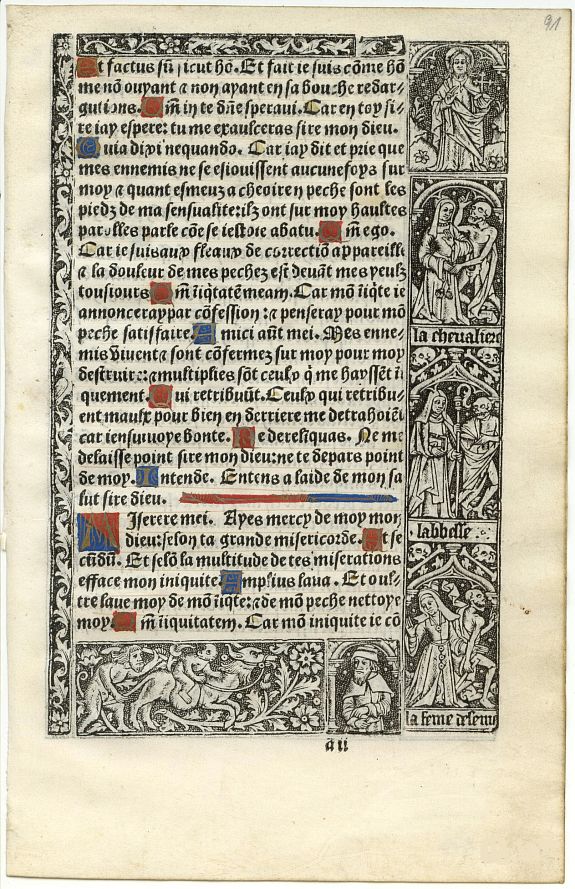 91
Et factus sũ sicut hõ. Et fait ie suis cõme hõ
me nõ ouyant ⁊ non ayant en sa bouche redar-
gutions. Q m̃ in te dñe speravi. Car en toy si-
re iay espere: tu me exaulceras sire mon dieu.
Quia dixi nequando. Car iay dit et prie que
mes ennemis ne se esiouissent aucunefoys sur
moy ⁊ quant esmeuz a cheoir en peche sont les
piedz de ma sensualite: ilz ont sur moy haultes
parolles parle cõe se iestoie abatu. Q m̃ ego.
Car ie suis aux fleaux de correctiõ appareille
⁊ la douleur de mes pechez est devãt mes yeulx
tousiours Q m̃ iiq̃tatẽ meam. Car mõ iiq̃te ie
annonceray par cõfession: ⁊ penseray pour mõ
peche satisfaire. Inimici aũt mei. Mes enne-
mis vivent ⁊ sont cõfermez sur moy pour moy
destruire: ⁊ multiplies sõt ceulx q̃ me hayssẽt ĩi
quement. Qui retribuũt. Ceulx qui retribu-
ent maulx pour bien en derriere me detrahoiẽt
car iensuiuoye bonte. Ne derelĩquas. Ne me
delaisse point sire mon dieu: ne te depars point
de moy. Intende. Entens a laide de mon sa
lut sire dieu.
Miserere mei. Ayes mercy de moy mon
dieu: selon ta grande misericorde. Et se
cũdũ. Et selõ la multitude de tes miserations
efface mon iniquite. Amplius lava. Et oul-
tre lave moy de mõ iiq̃te: ⁊ de mõ peche nettoye
moy. Q m̃ iniquitatem. Car mõ iniquite ie cõ
la chevaliere
labbesse
la feme desenu
a ii